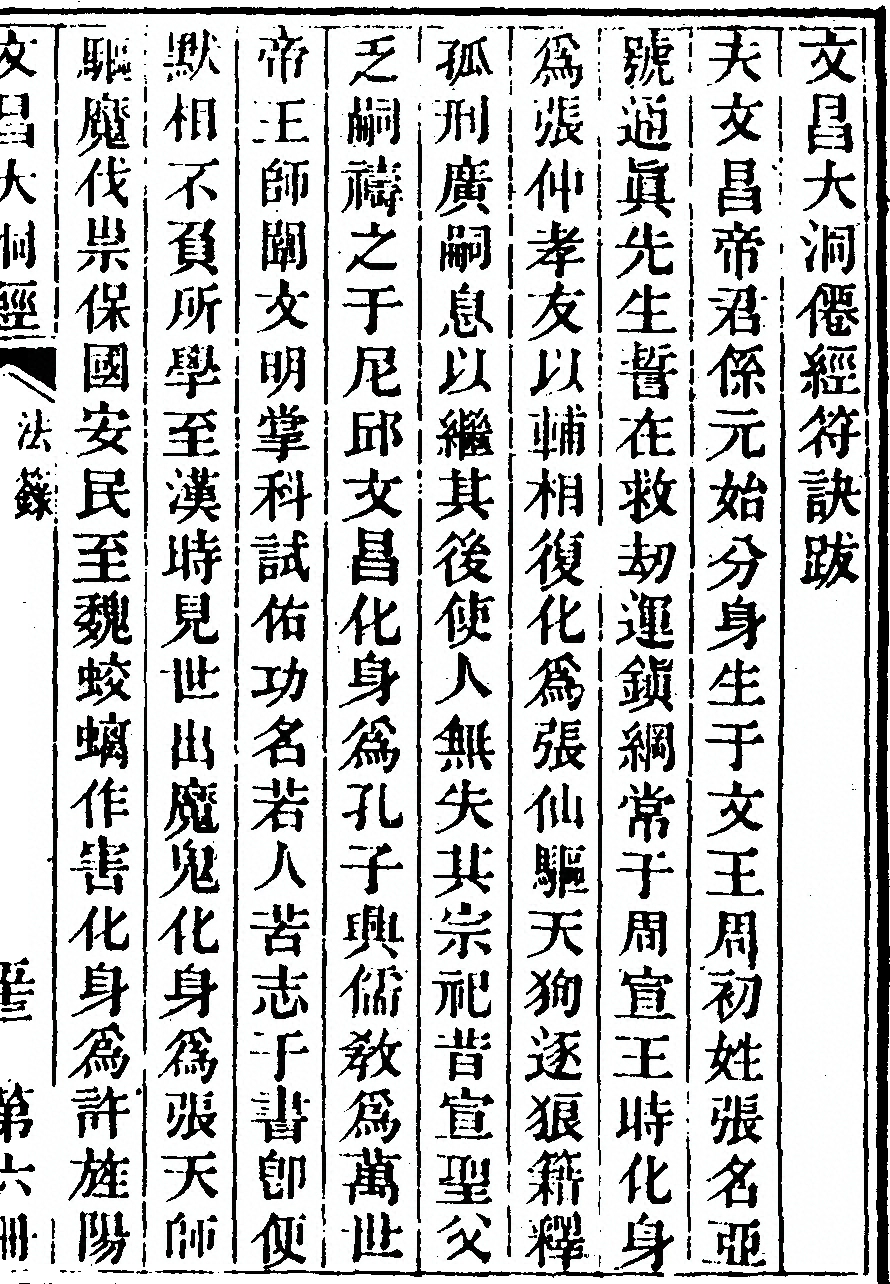 文昌大洞僊經符訣跋
夫文昌帝君係元始分身生于文王周初姓張名亞
號通眞先生誓在救劫運鎭綱常于周宣王時化身
爲張仲孝友以輔相復化爲張仙驅天狗逐狼籍釋
孤刑廣嗣息以繼其後使人無失其宗祀昔宣聖父
乏嗣禱之于尼邱文昌化身爲孔子興儒教爲萬世
帝王師闡文明掌科試佑功名若人苦志于書卽便
默相不負所學至漢時見世出魔鬼化身爲張天師
驅魔伐祟保國安民至魏蛟螭作害化身爲許旌陽
文昌大洞經 法籙 第六冊